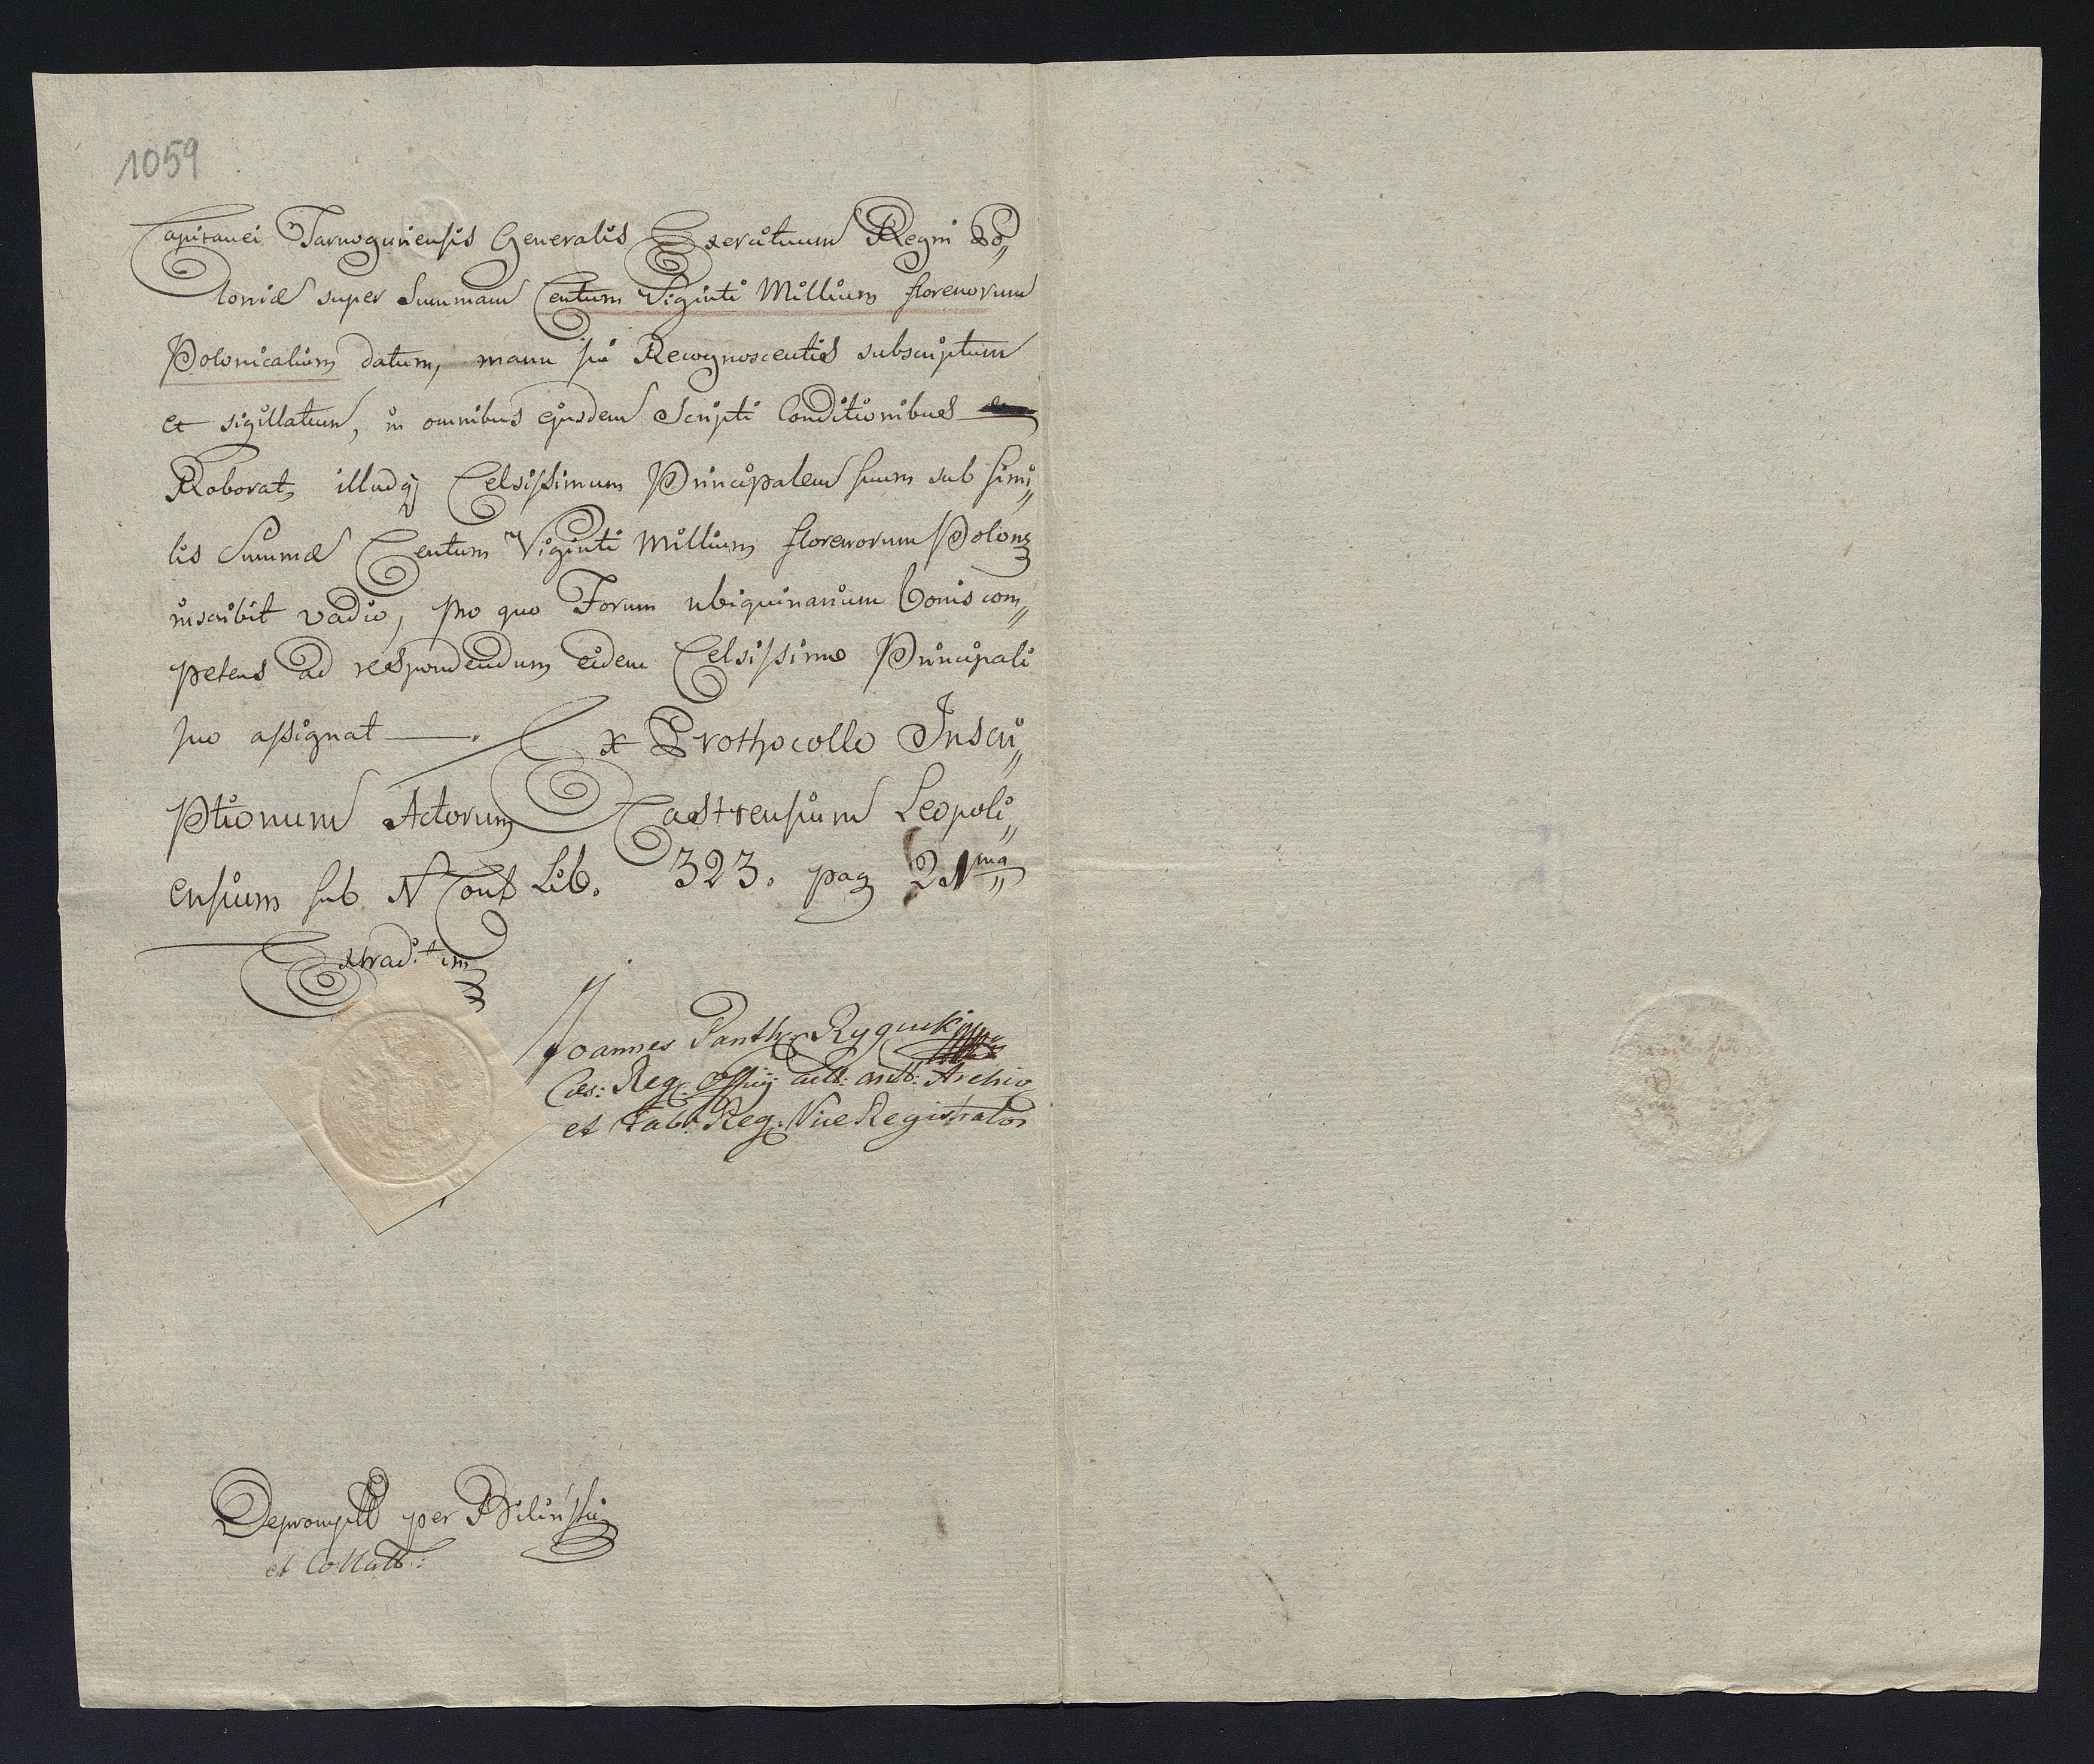 1059
Capitanei Tarnoguriensis Generalis Exercituum Regni Po„
loniæ super Summam Centum Viginti Millium florenorum
Polonicalium datum, manu sui Recognoscentis subscriptum
et sigillatum, in omnibus ejusdem Scripti Conditionibus
Roborat, illudq Celsissimum Principalem suum sub simi„
lis Summæ Centum Viginti Millium florenorum Polon
inscribit vadio, pro quo Forum ubiquinarium bonis com„
petens ad respondendum eidem Celsissimo Principali
suo assignat —. Ex Prothocollo Inscri„
ptionum Actorum Castrensium Leopoli„
ensium sub N Cont Lib. 323. pag 21ma
Extraditum
Joannes Panth
Cæs: Reg: Officij ant: Archiv
et Tab: Reg: Vice Registrator
Deprompt per Biliński
et Collatt: